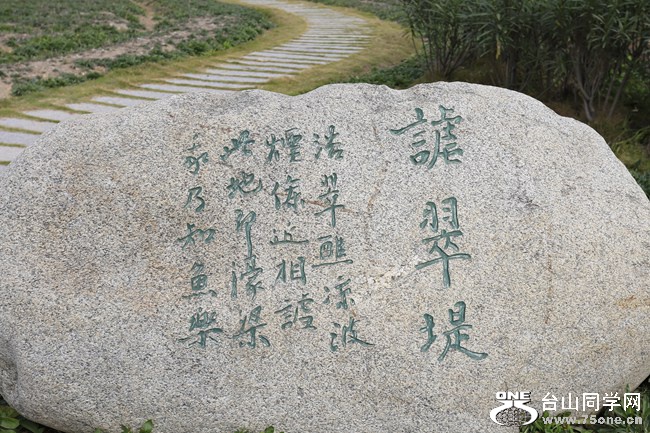 謔翠堤
浩翠醮凉波
煙條近相謔
此地即濠梁
我乃知魚樂
ONE 台山同学网
www.75one.cn